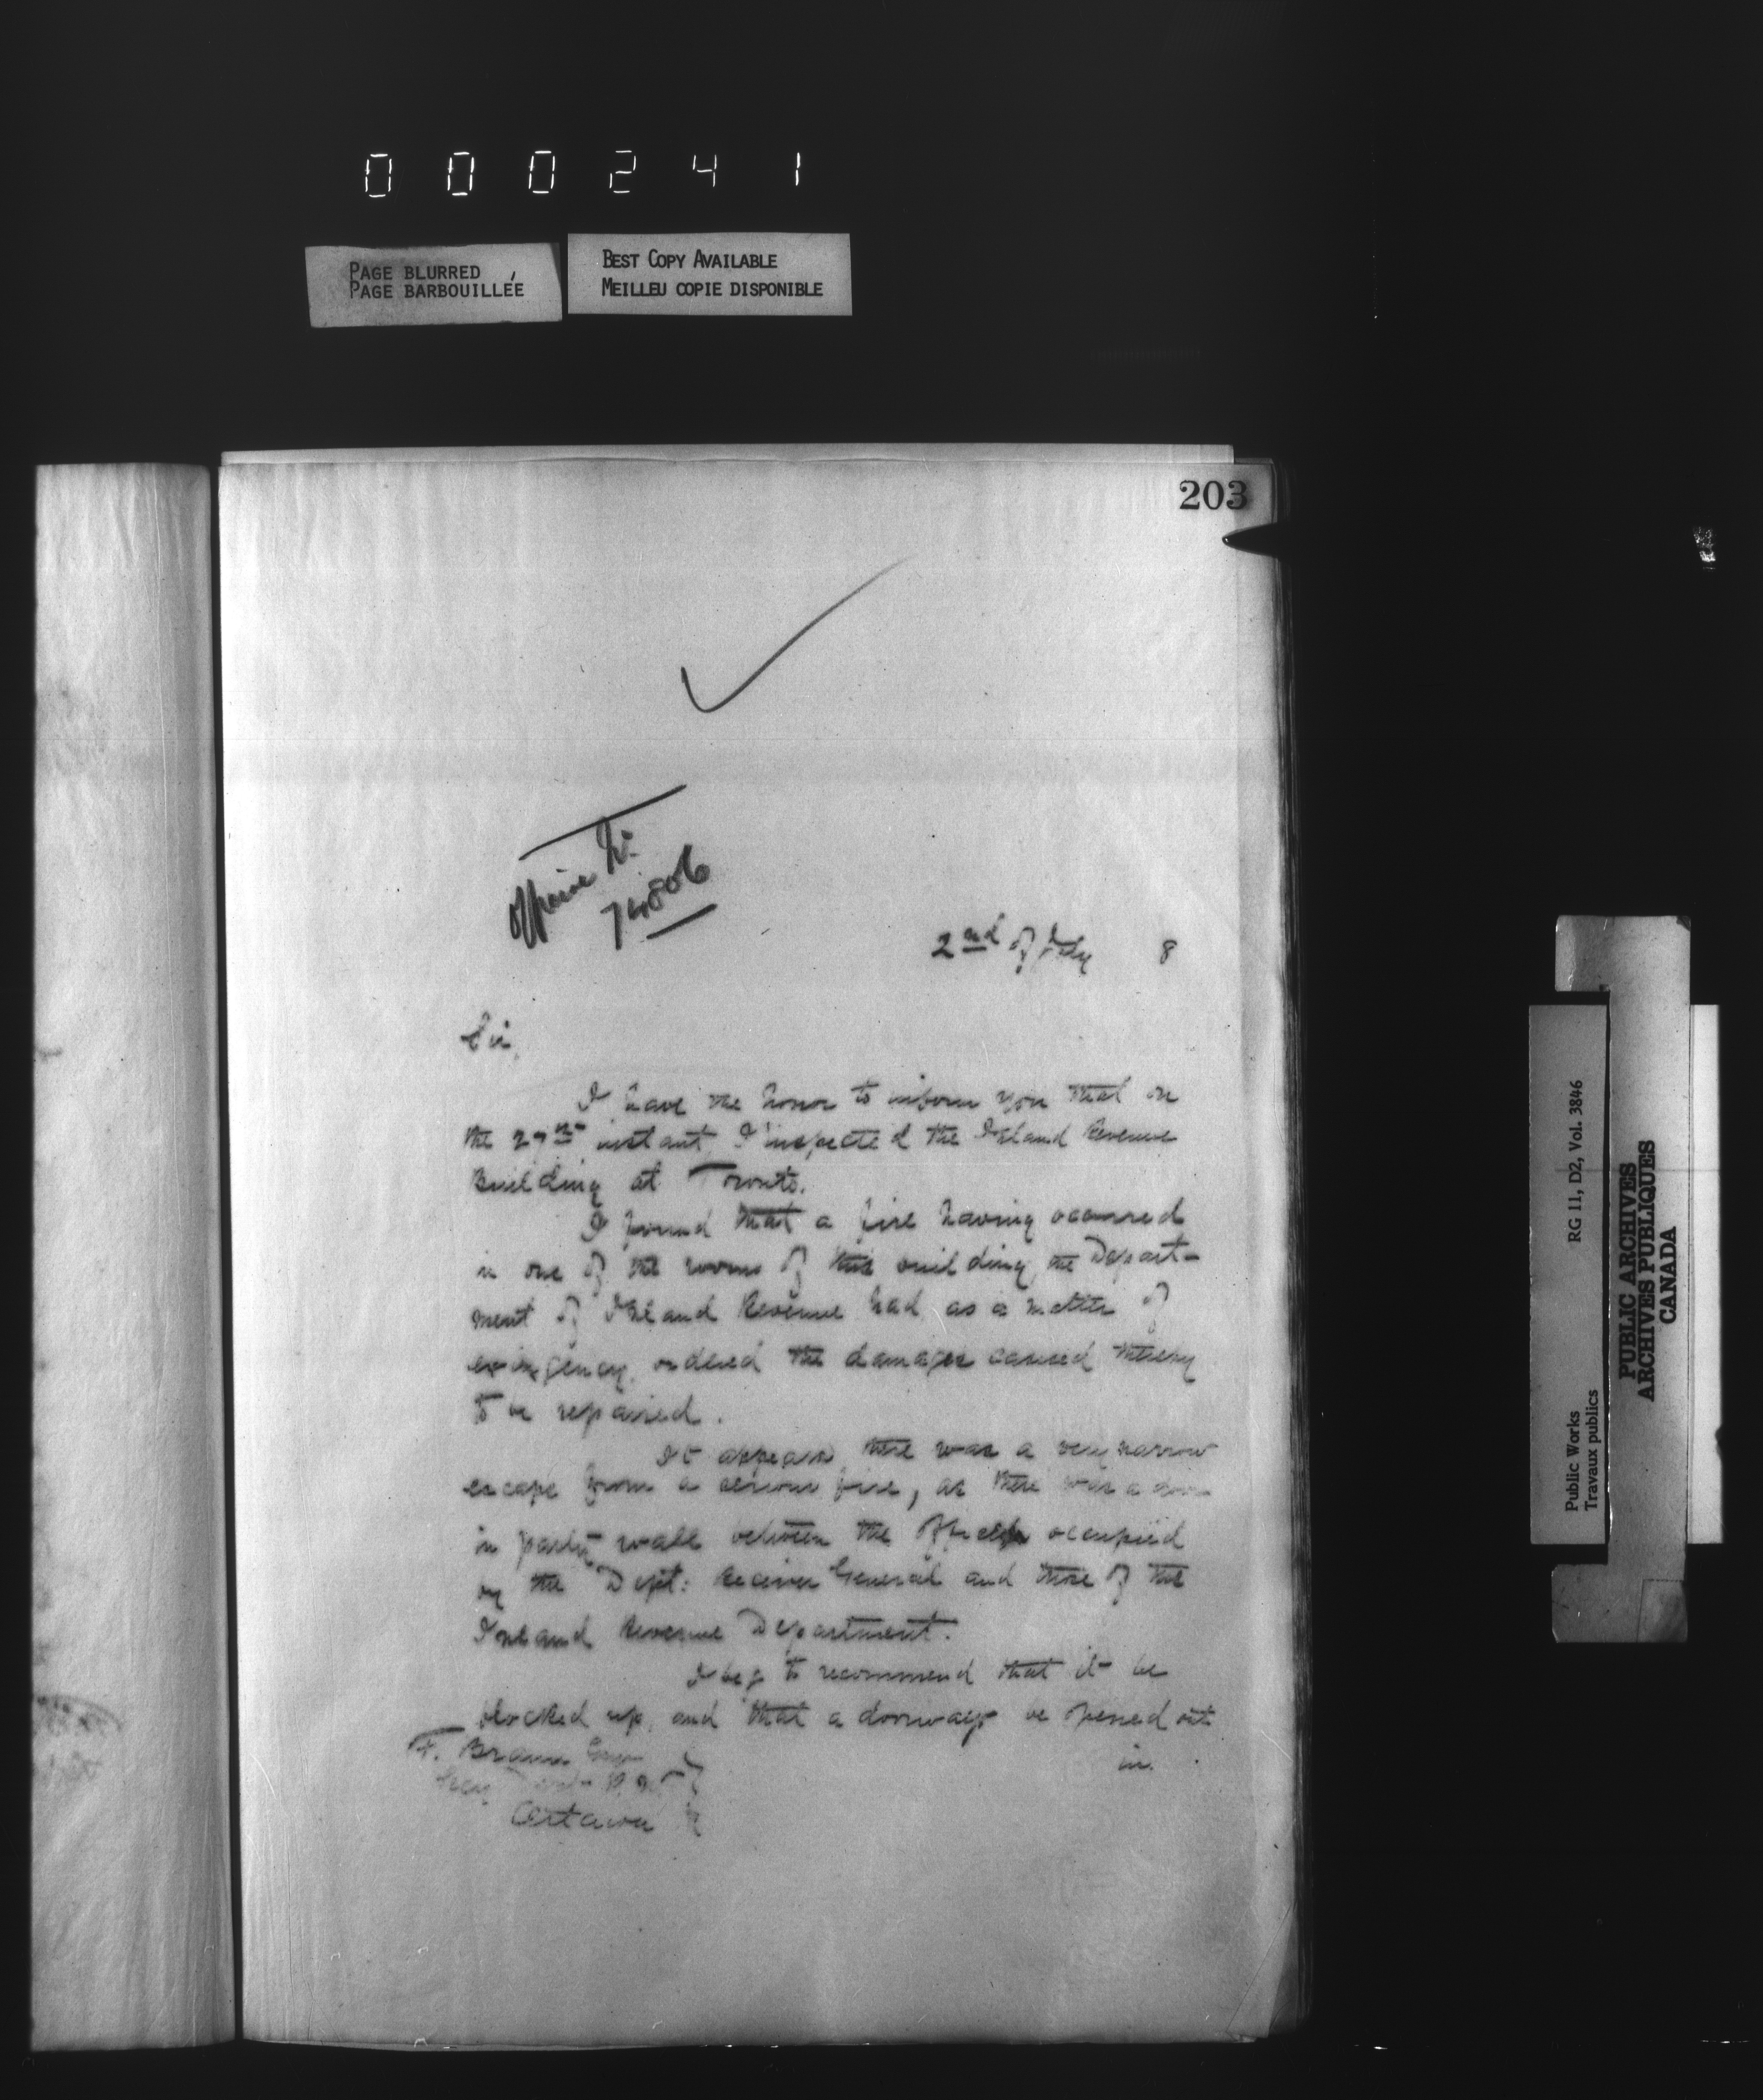 000241
PAGE BLURRED
PAGE BARBOUILLÉE
BEST COPY AVAILABLE
MEILLEU COPIE DISPONIBLE
203
Office No
74806
2nd of July 8
Sir,
I have the honor to inform you that on
the 27th instant I inspected the Inland Revenue
Building at Toronto.
I found that a fire having occurred
in one of the rooms of this building, the Depart-
ment of Inland Revenue had, as a matter of
exigency, ordered the damages caused thereby
to be repaired.
It appears there was a very narrow
escape from a serious fire, as there was a door
in party wall between the offices occupied
by the Dept: Receiver General and those of the
Inland Revenue Department.
I beg to recommend that it be
blocked up, and that a doorway be opened out
in
F. Braun Esqr
Secy Dept P.W.
Ottawa
RG 11, D2, Vol. 3846
Public Works
Travaux publics
PUBLIC ARCHIVES
ARCHIVES PUBLIQUES
CANADA